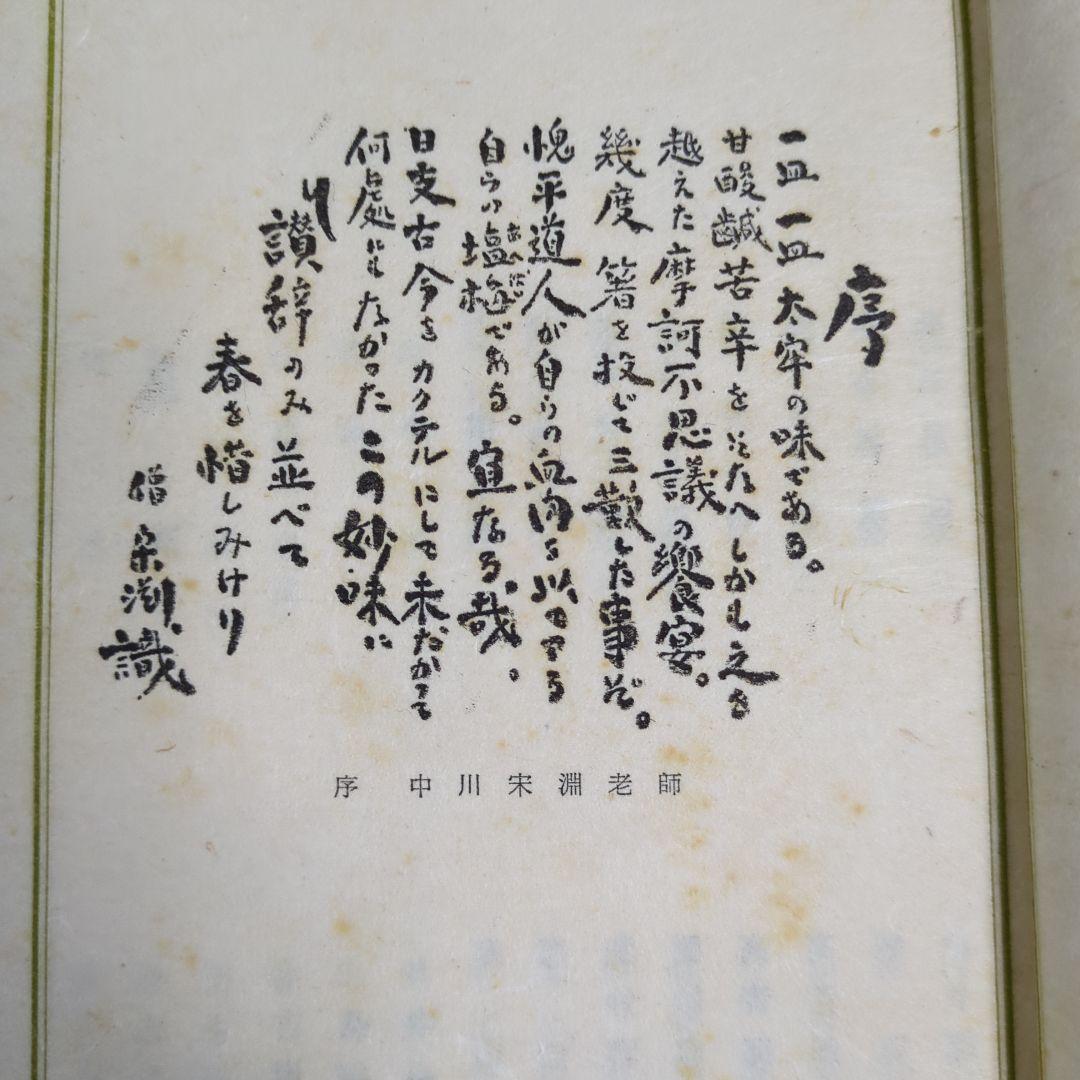 序
一皿一皿太牢の味である。
甘酸鹹苦辛をそなへしかも之を
越えた摩訶不思議の饗宴。
幾度箸を投じて三歎した事ぞ。
愧平道人が自らの血肉を以てする
自らの塩梅である。宜なる哉。
あんばい
日支古今をカクテルにして未だかつて
何處にもなかったこの妙味に
讃辞のみ並べて
春を惜しみけり
僧宋淵識
序 中川宋淵老師